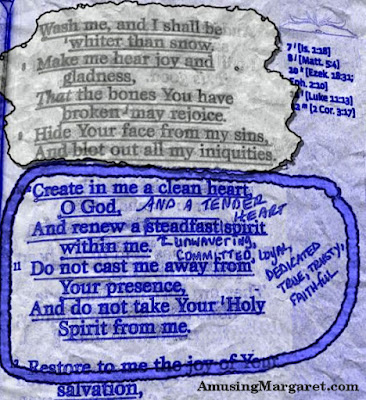 Wash me, and I shall be
'whiter than snow.
8 Make me hear joy and
gladness,
That the bones You have
broken may rejoice.
9 Hide Your face from my sins,
And blot out all my iniquities.
Create in me a clean heart,
O God, AND A TENDER HEART
And renew a steadfast spirit
within me. UNWAVERING,
COMMITTED, LOYAL,
DEDICATED
TRUE, TRUSTY,
FAITHFUL
11 Do not cast me away from
Your presence,
And do not take Your 'Holy
Spirit from me.
Restore to me the joy of Your
salvation,
7 i [Is. 1:18]
8 j [Matt. 5:4]
10 k [Ezek. 18:31;
Eph. 2:10]
[Luke 11:13]
12 m [2 Cor. 3:17]
AmusingMargaret.com